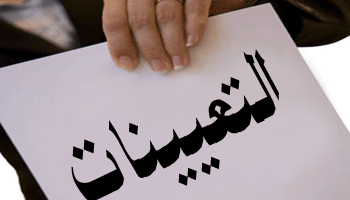 التعيينات